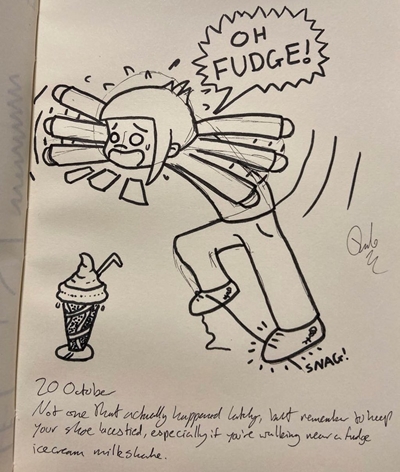 OH
FUDGE!
SNAG!
20 October
Not one that actually happened lately, but remember to keep
your shoe laces tied, especially if you're walking near a fudge
icecream milkshake.